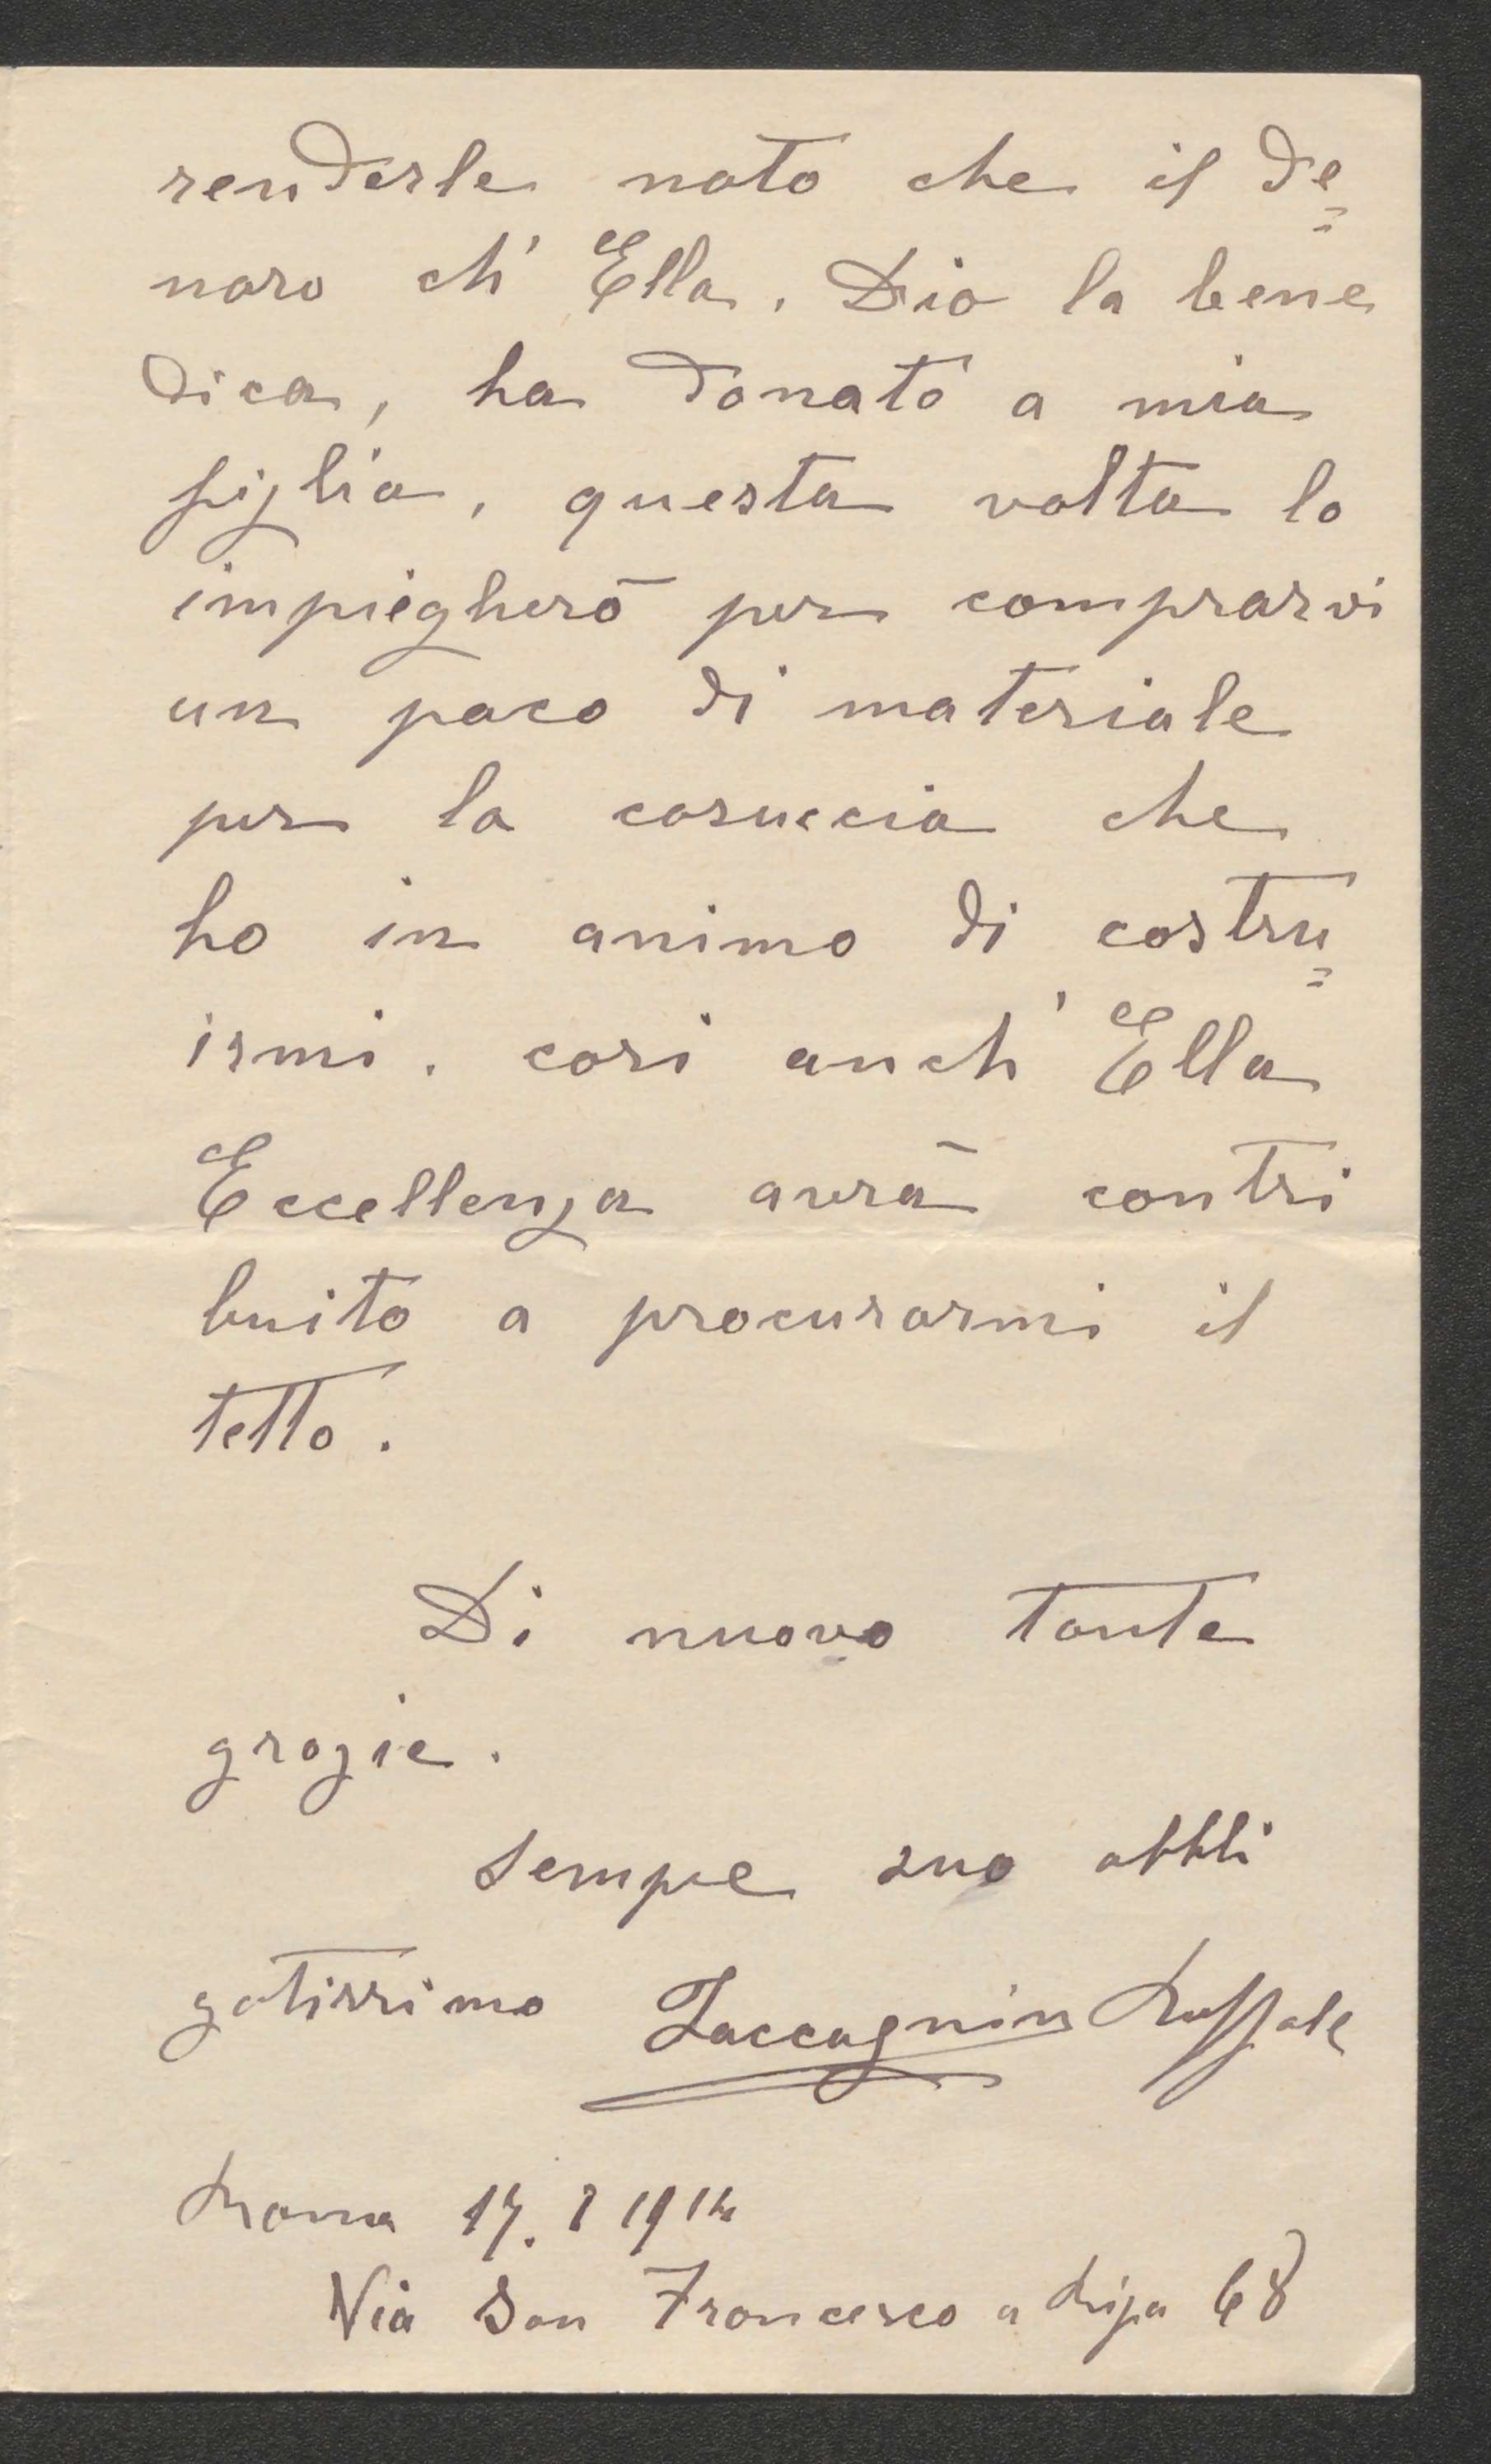 renderle noto che il de=
naro ch' Ella, Dio la bene
dica, ha donato a mia
figlia, questa volta lo
impiegherò per comprarvi
un poco di materiale
per la casuccia che
ho in animo di costru=
irmi. così anch' Ella
Eccellenza avrà contri
buito a procurarmi il
tetto.
Di nuovo tante
grazie.
Sempre suo obbli
gatissimo Zaccagnini
Roma 1914
Via San Francesco a Ripa 68